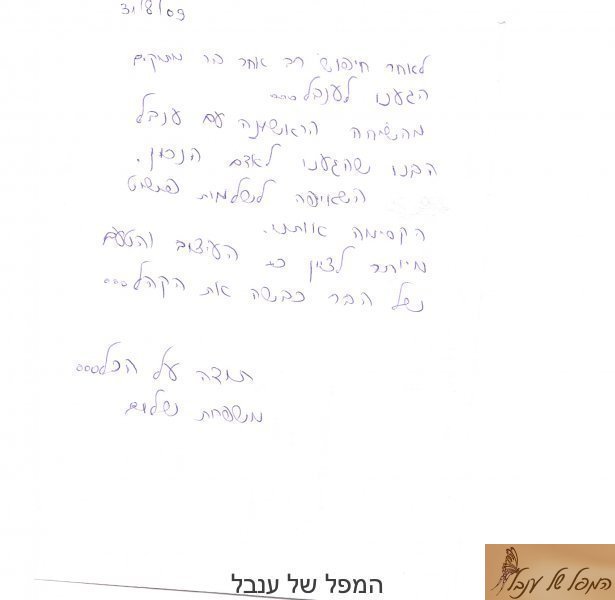 31/8/09
לאחר חיפוש רב אחר בר מתוקים
הגענו לענבל...
מהשיחה הראשונה עם ענבל
הבנו שהגענו לאדם הנכון.
השאיפה לשלמות פשוט
הקסימה אותנו.
מיותר לציין כי העיצוב והטעם
של הבר כבשה את הקהל...
תודה על הכל...
משפחת שלום
המפל של ענבל
המפל של ענבל